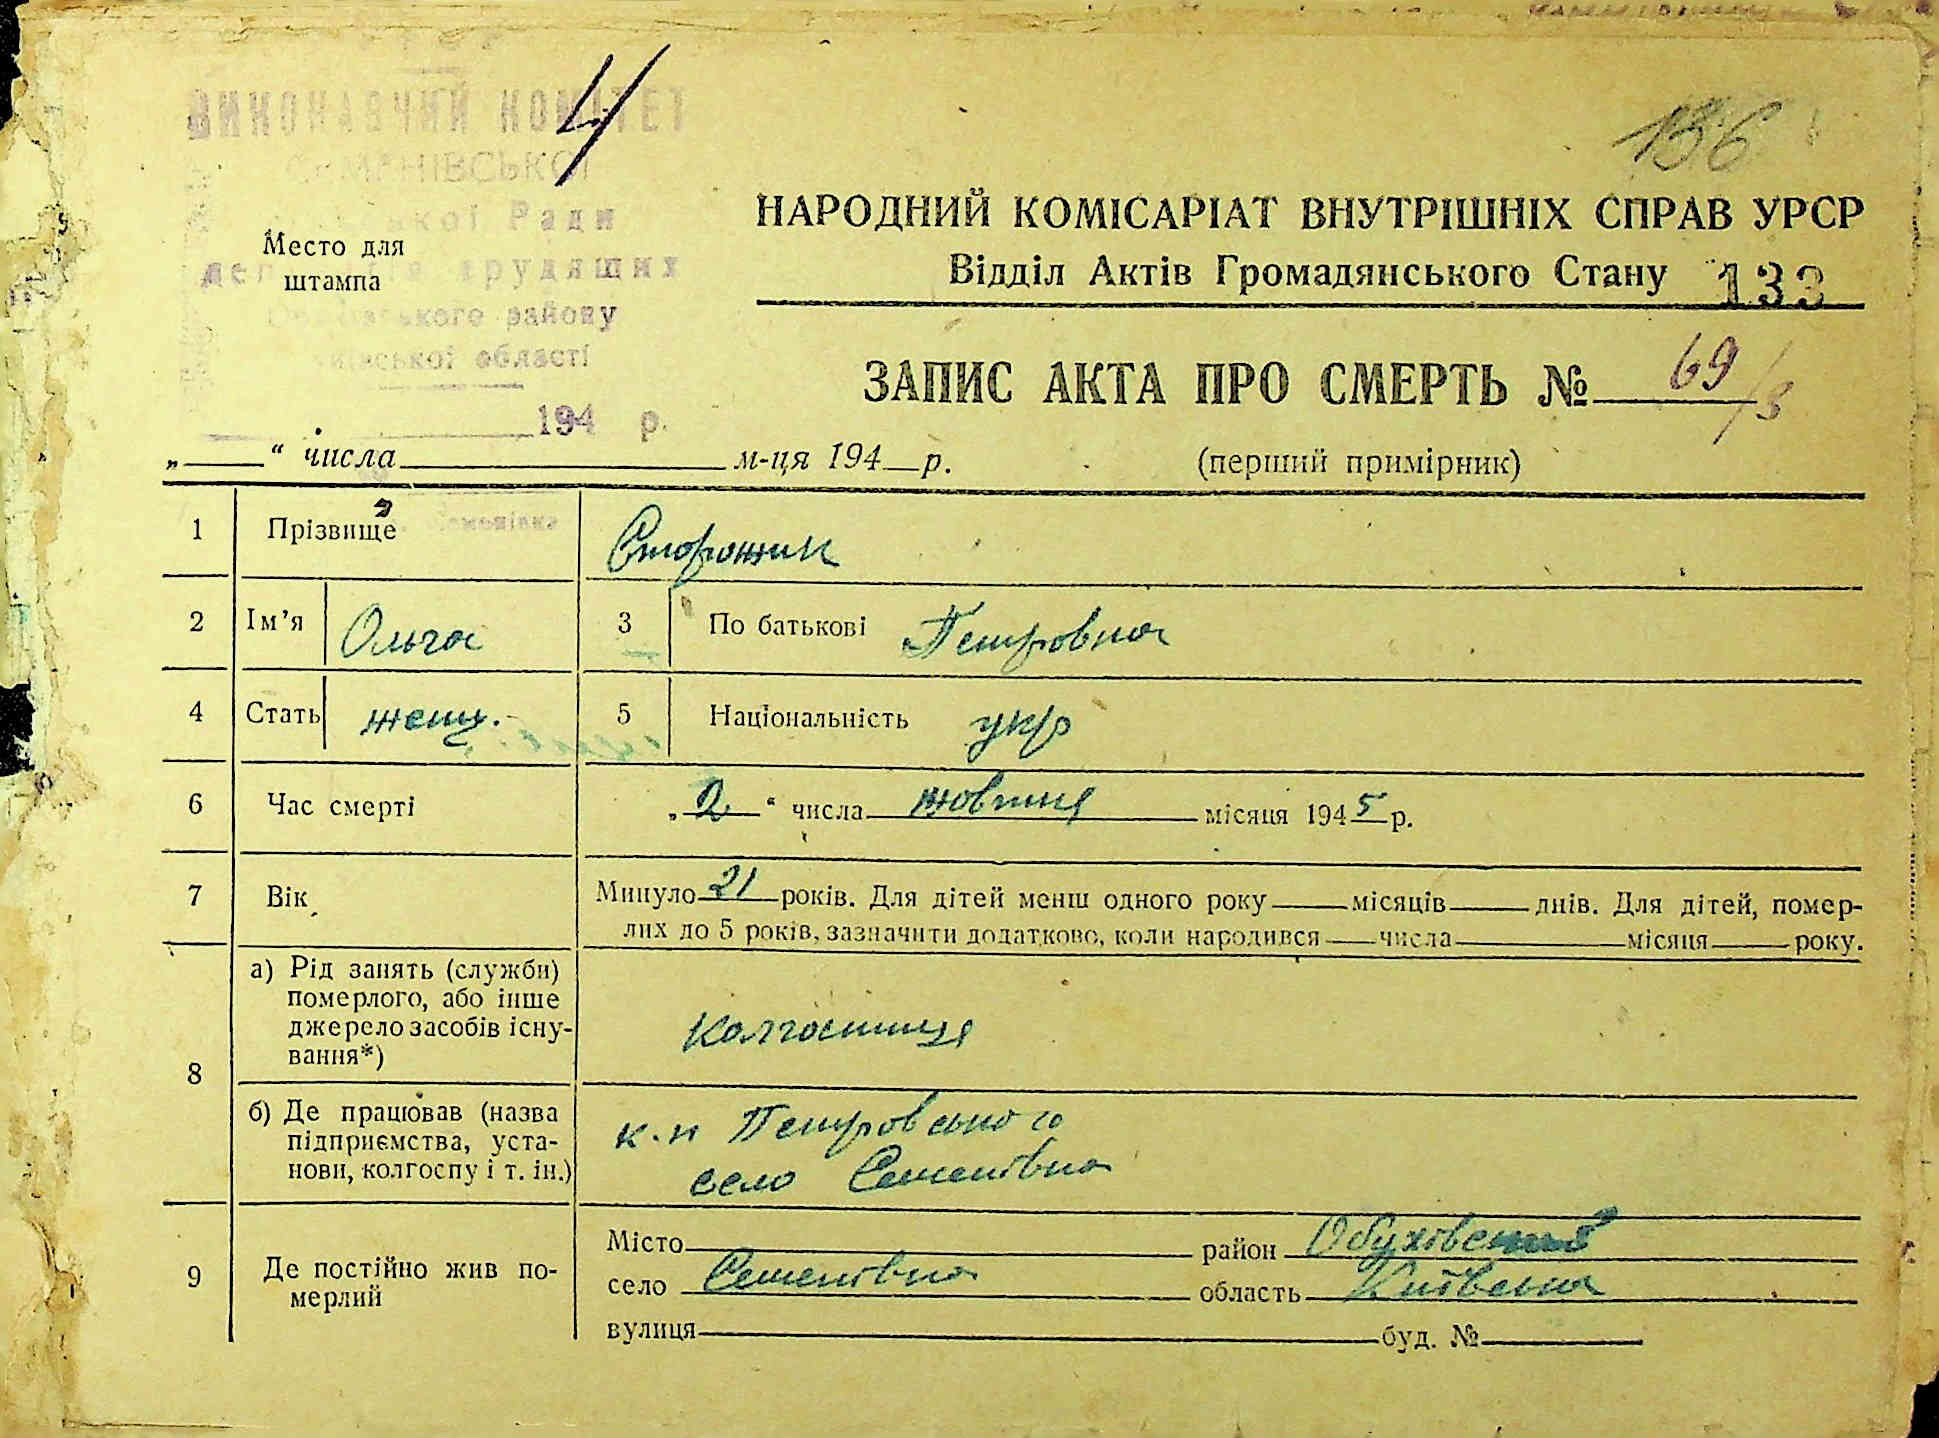 4
136
ВИКОНАВЧИЙ КОМІТЕТ
СЕМЕНІВСЬКОЇ
Ради
трудящих
району
області
194 р.
Место для
штампа
НАРОДНИЙ КОМІСАРІАТ ВНУТРІШНІХ СПРАВ УРСР
Відділ Актів Громадянського Стану 133
ЗАПИС АКТА ПРО СМЕРТЬ № 69/3
„ “ числа м-ця 194 р. (перший примірник)
1 Прізвище Сторожик
2 Ім’я Ольга 3 По батькові Петровна
4 Стать женщ. 5 Національність укр
6 Час смерті „2“ числа жовтня місяця 1945 р.
7 Вік Минуло 21 років. Для дітей менш одного року місяців днів. Для дітей, помер-
лих до 5 років, зазначити додатково, коли народився числа місяця року.
8 а) Рід занять (служби)
померлого, або інше
джерело засобів існу-
вання*)
Колгоспниця
б) Де працював (назва
підприємства, уста-
нови, колгоспу і т. ін.)
к-п Петровського
село Семенівна
9 Де постійно жив по-
мерлий
Місто район Обухівський
село Семенівна область Київська
вулиця буд. №